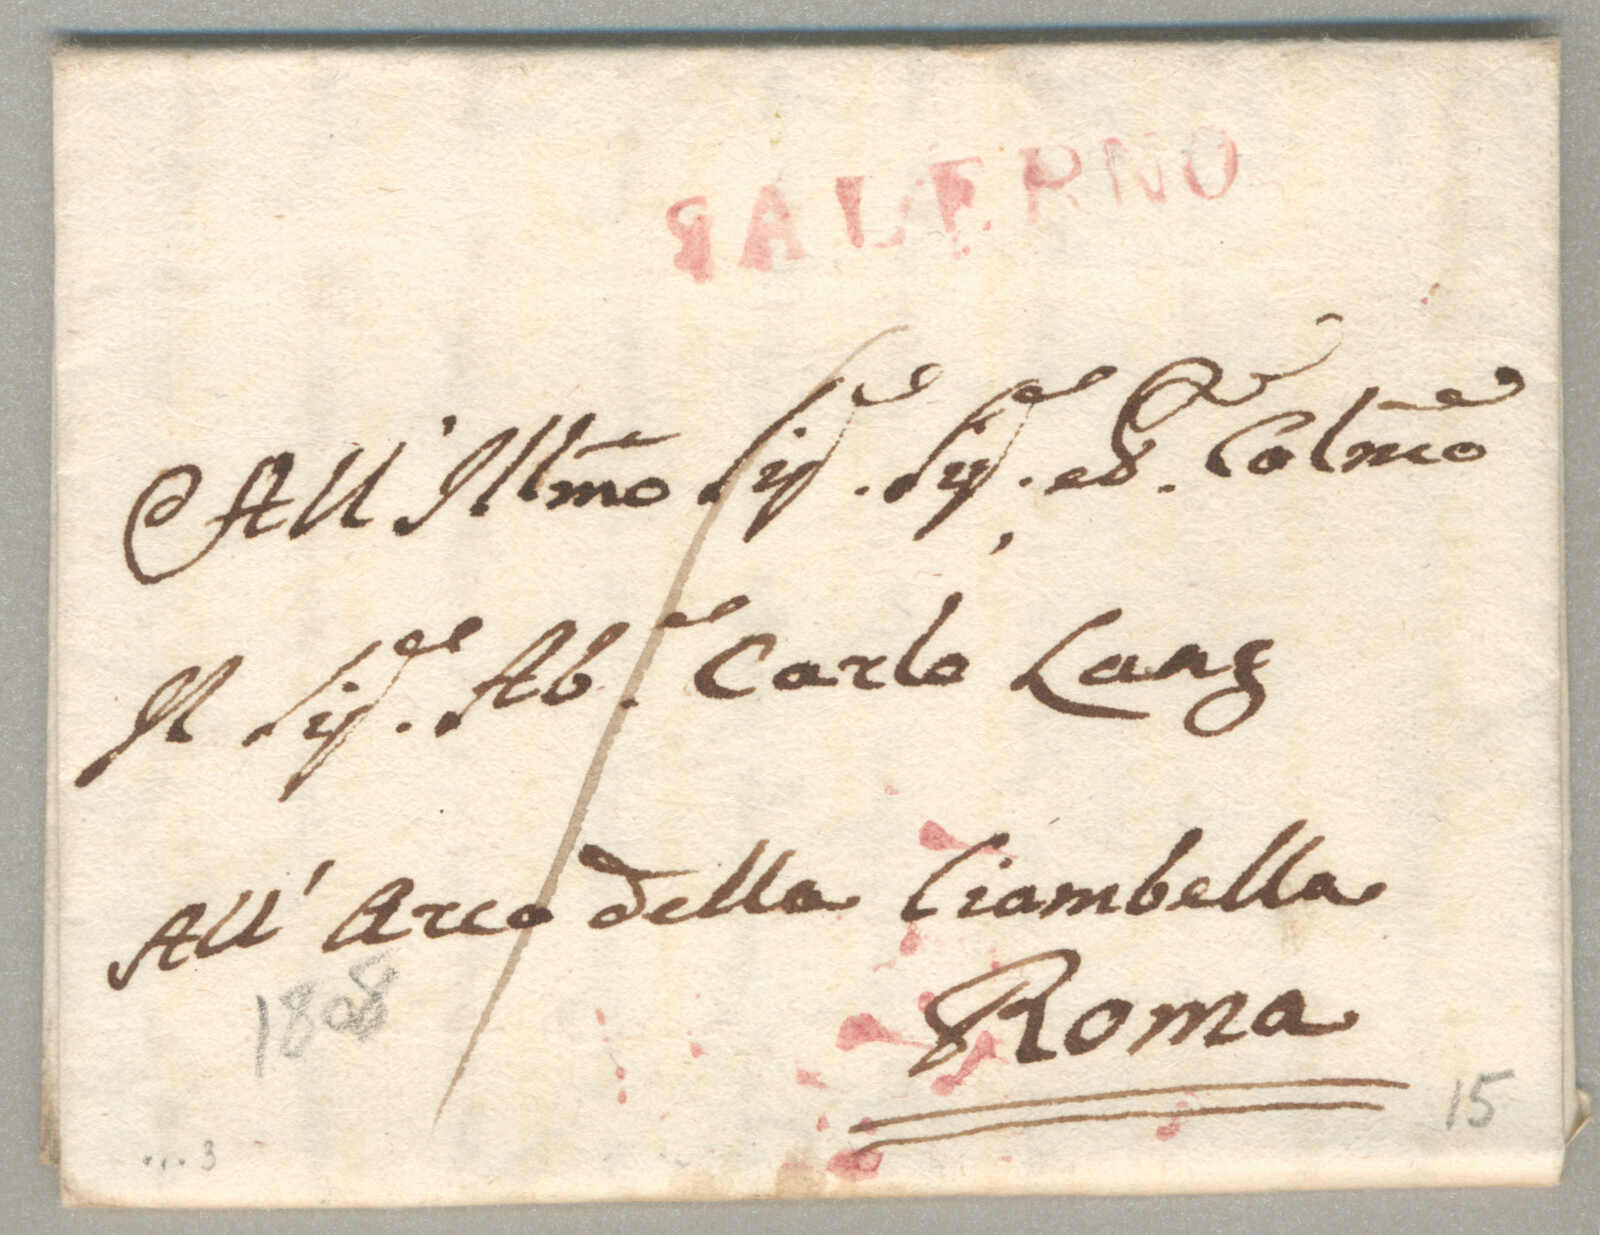 SALERNO
All' Illmo Sig.re Sig.re e P.rone Colmo
Il Sig.re Ab.e Carlo Lang
All' Arco della Ciambella
Roma
1808
15
3